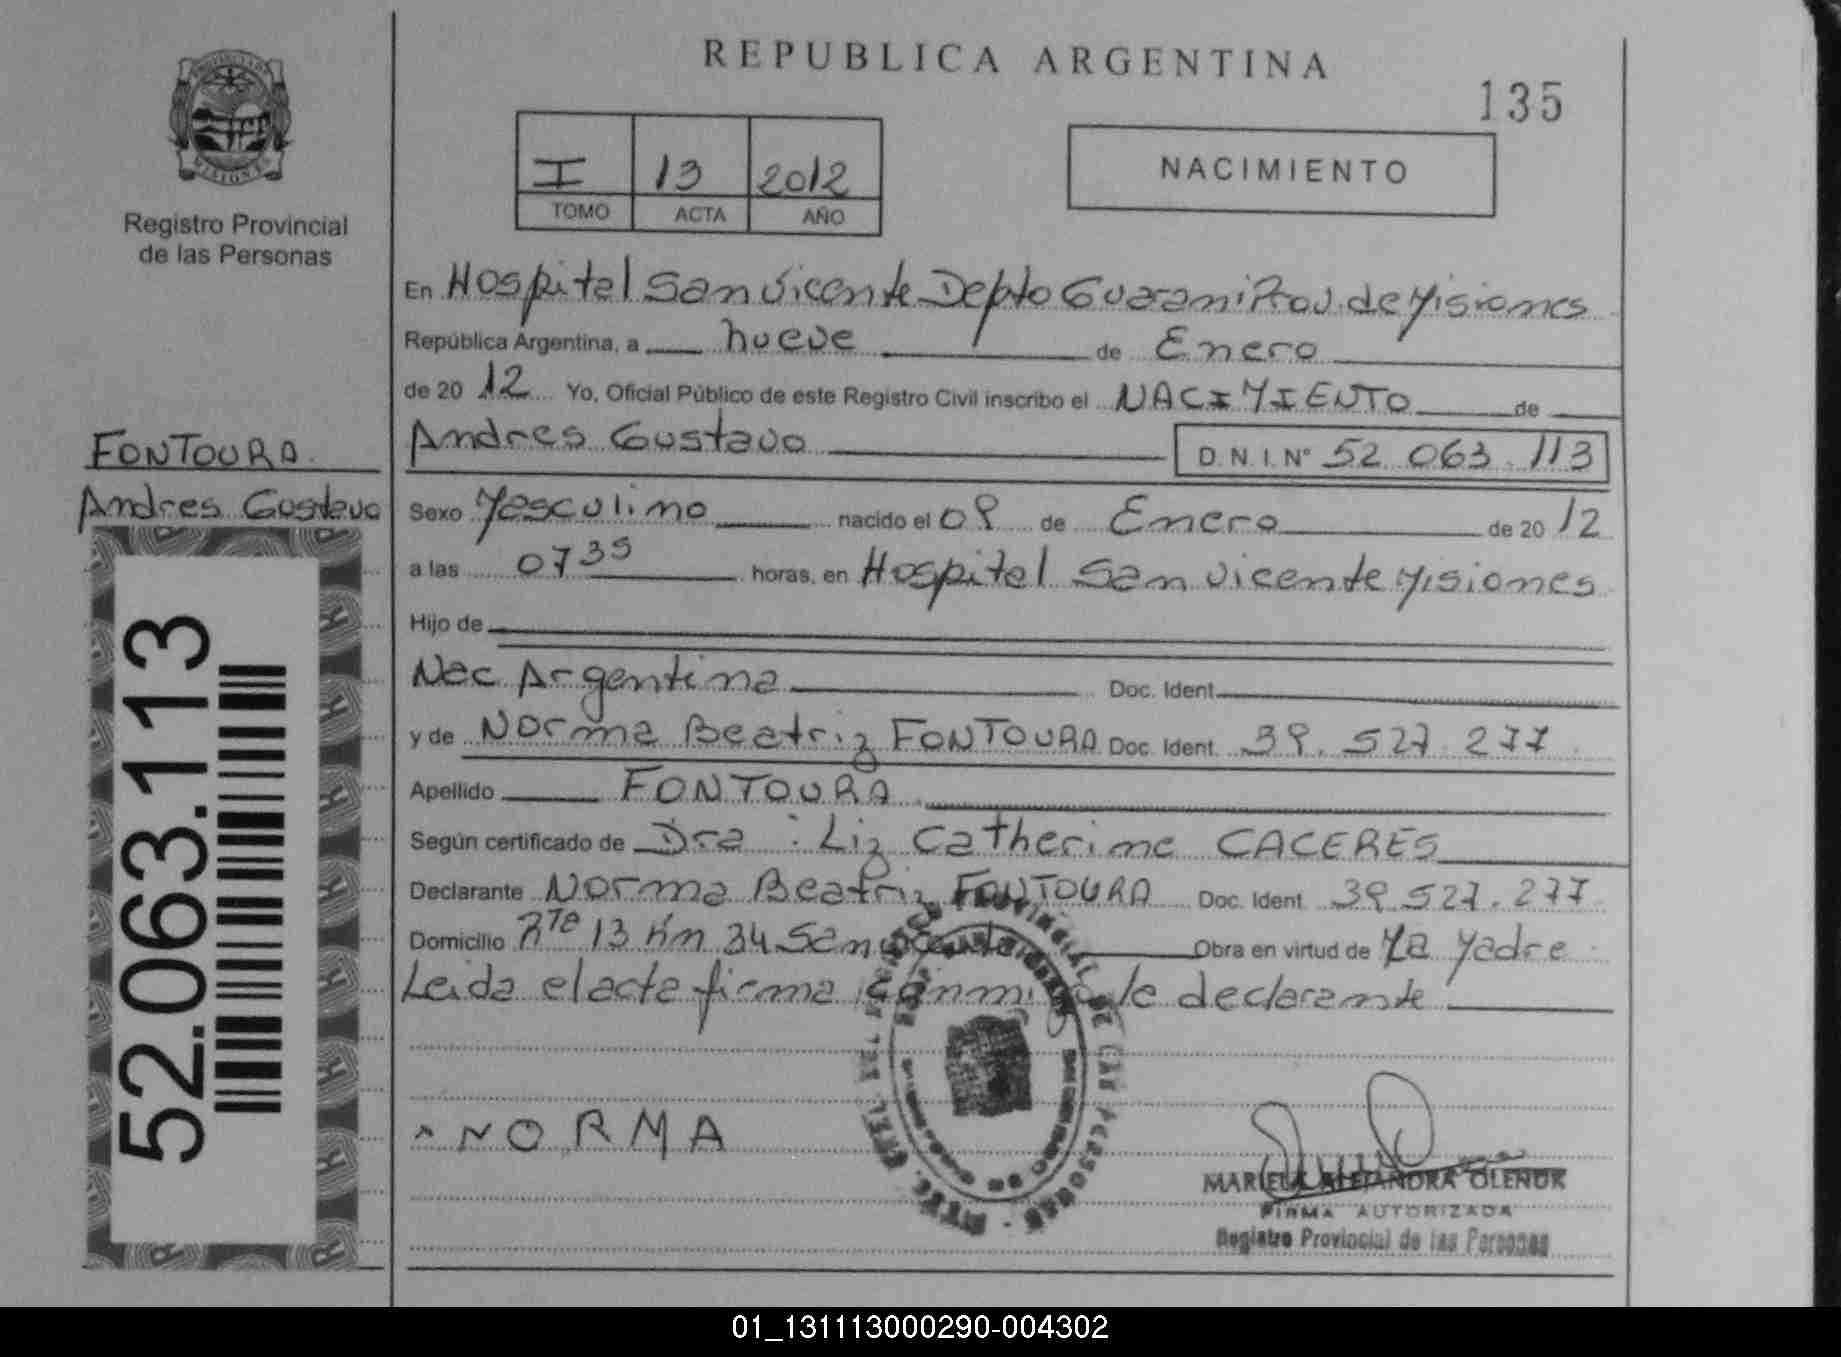 REPUBLICA ARGENTINA
135
PROVINCIA DE MISIONES
Registro Provincial
de las Personas
I 13 2012
TOMO ACTA AÑO
NACIMIENTO
En Hospital San Vicente Depto Guarani Prov. de Misiones
República Argentina, a nueve de Enero
de 20 12 Yo, Oficial Público de este Registro Civil inscribo el NACIMIENTO de
Andres Gustavo D.N.I. N° 52 063.113
FONTOURA
Andres Gustavo
52.063.113
Sexo Masculino nacido el 09 de Enero de 20 12
a las 07 35 horas, en Hospital San Vicente Misiones
Hijo de
Nac Argentina Doc. Ident.
y de Norma Beatriz FONTOURA Doc. Ident. 39.527.277
Apellido FONTOURA
Según certificado de Dra: Liz Catherine CACERES
Declarante Norma Beatriz FONTOURA Doc. Ident. 39.527.277
Domicilio Rta 13 Km 34 San Vicente Obra en virtud de La Madre
Leida el acta firma conmigo la declarante
NORMA
MARIELA ALEJANDRA OLENUK
FIRMA AUTORIZADA
Registro Provincial de las Personas
01_131113000290-004302